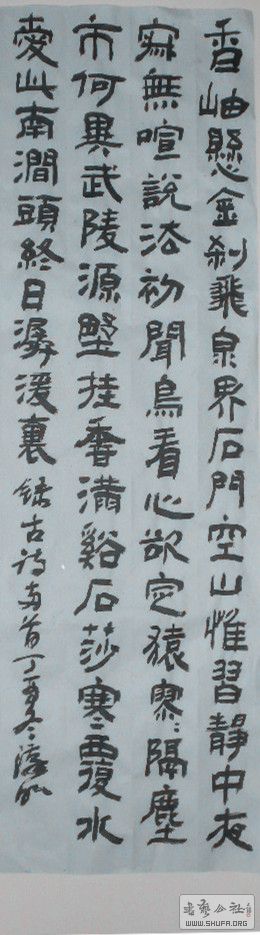 香岫懸金刹飛泉界石門空山惟習靜中夜
寂無喧說法初聞鳥看心欲定猿寥寥隔塵
市何異武陵源野桂香滿谿石莎寒覆水
愛此南澗頭終日潺湲裏 錄古詩兩首丁亥冬
書藝公社
WWW.SHUFA.ORG